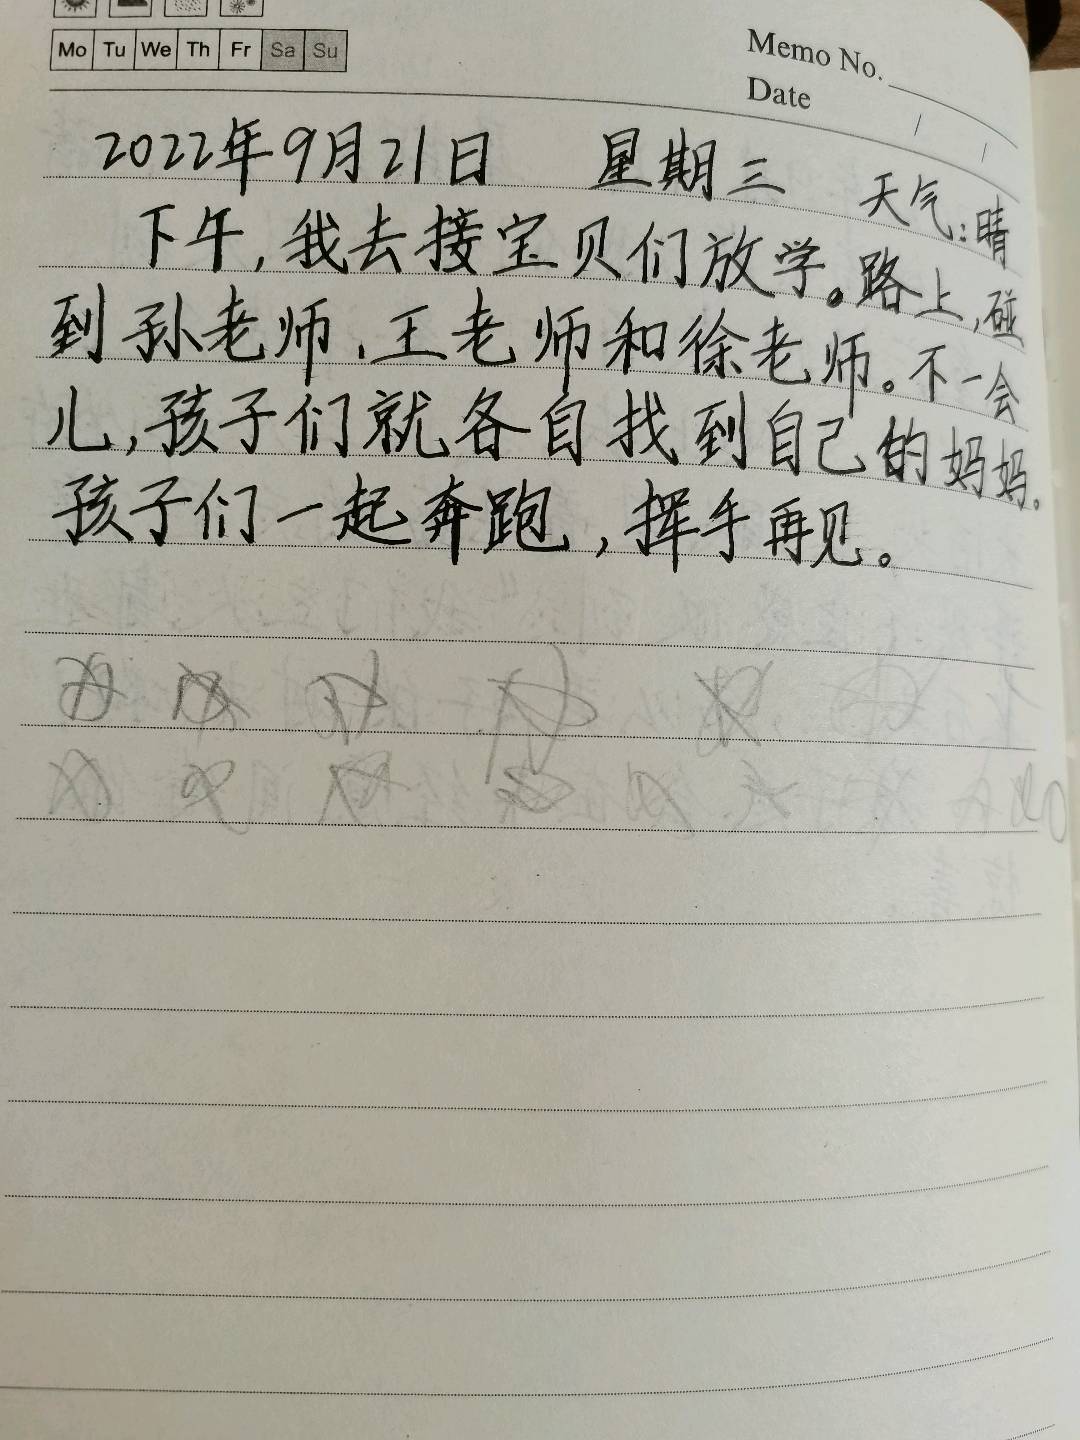 Mo Tu We Th Fr Sa Su
Memo No.
Date / /
2022年9月21日 星期三 天气:晴
下午,我去接宝贝们放学。路上,碰
到孙老师、王老师和徐老师。不一会
儿,孩子们就各自找到自己的妈妈。
孩子们一起奔跑,挥手再见。